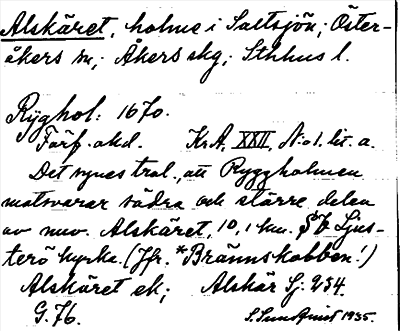 Alskäret, holme i Saltsjön; Öster-
åkers sn; Åkers skg; Sthlms l.
Ryghol: 1670.
Förf. okd. Kr.A. XXII, N:o 1. lit. a.
Det synes trol., att Ryggholmen
motsvarar södra och större delen
av nuv. Alskäret, 10,1 km. Ljus-
terö kyrka. (Jfr. *Brännskobben!)
Alskäret ek; Alskär Sj. 254.
G. 76.
S. Sundquist 1935.